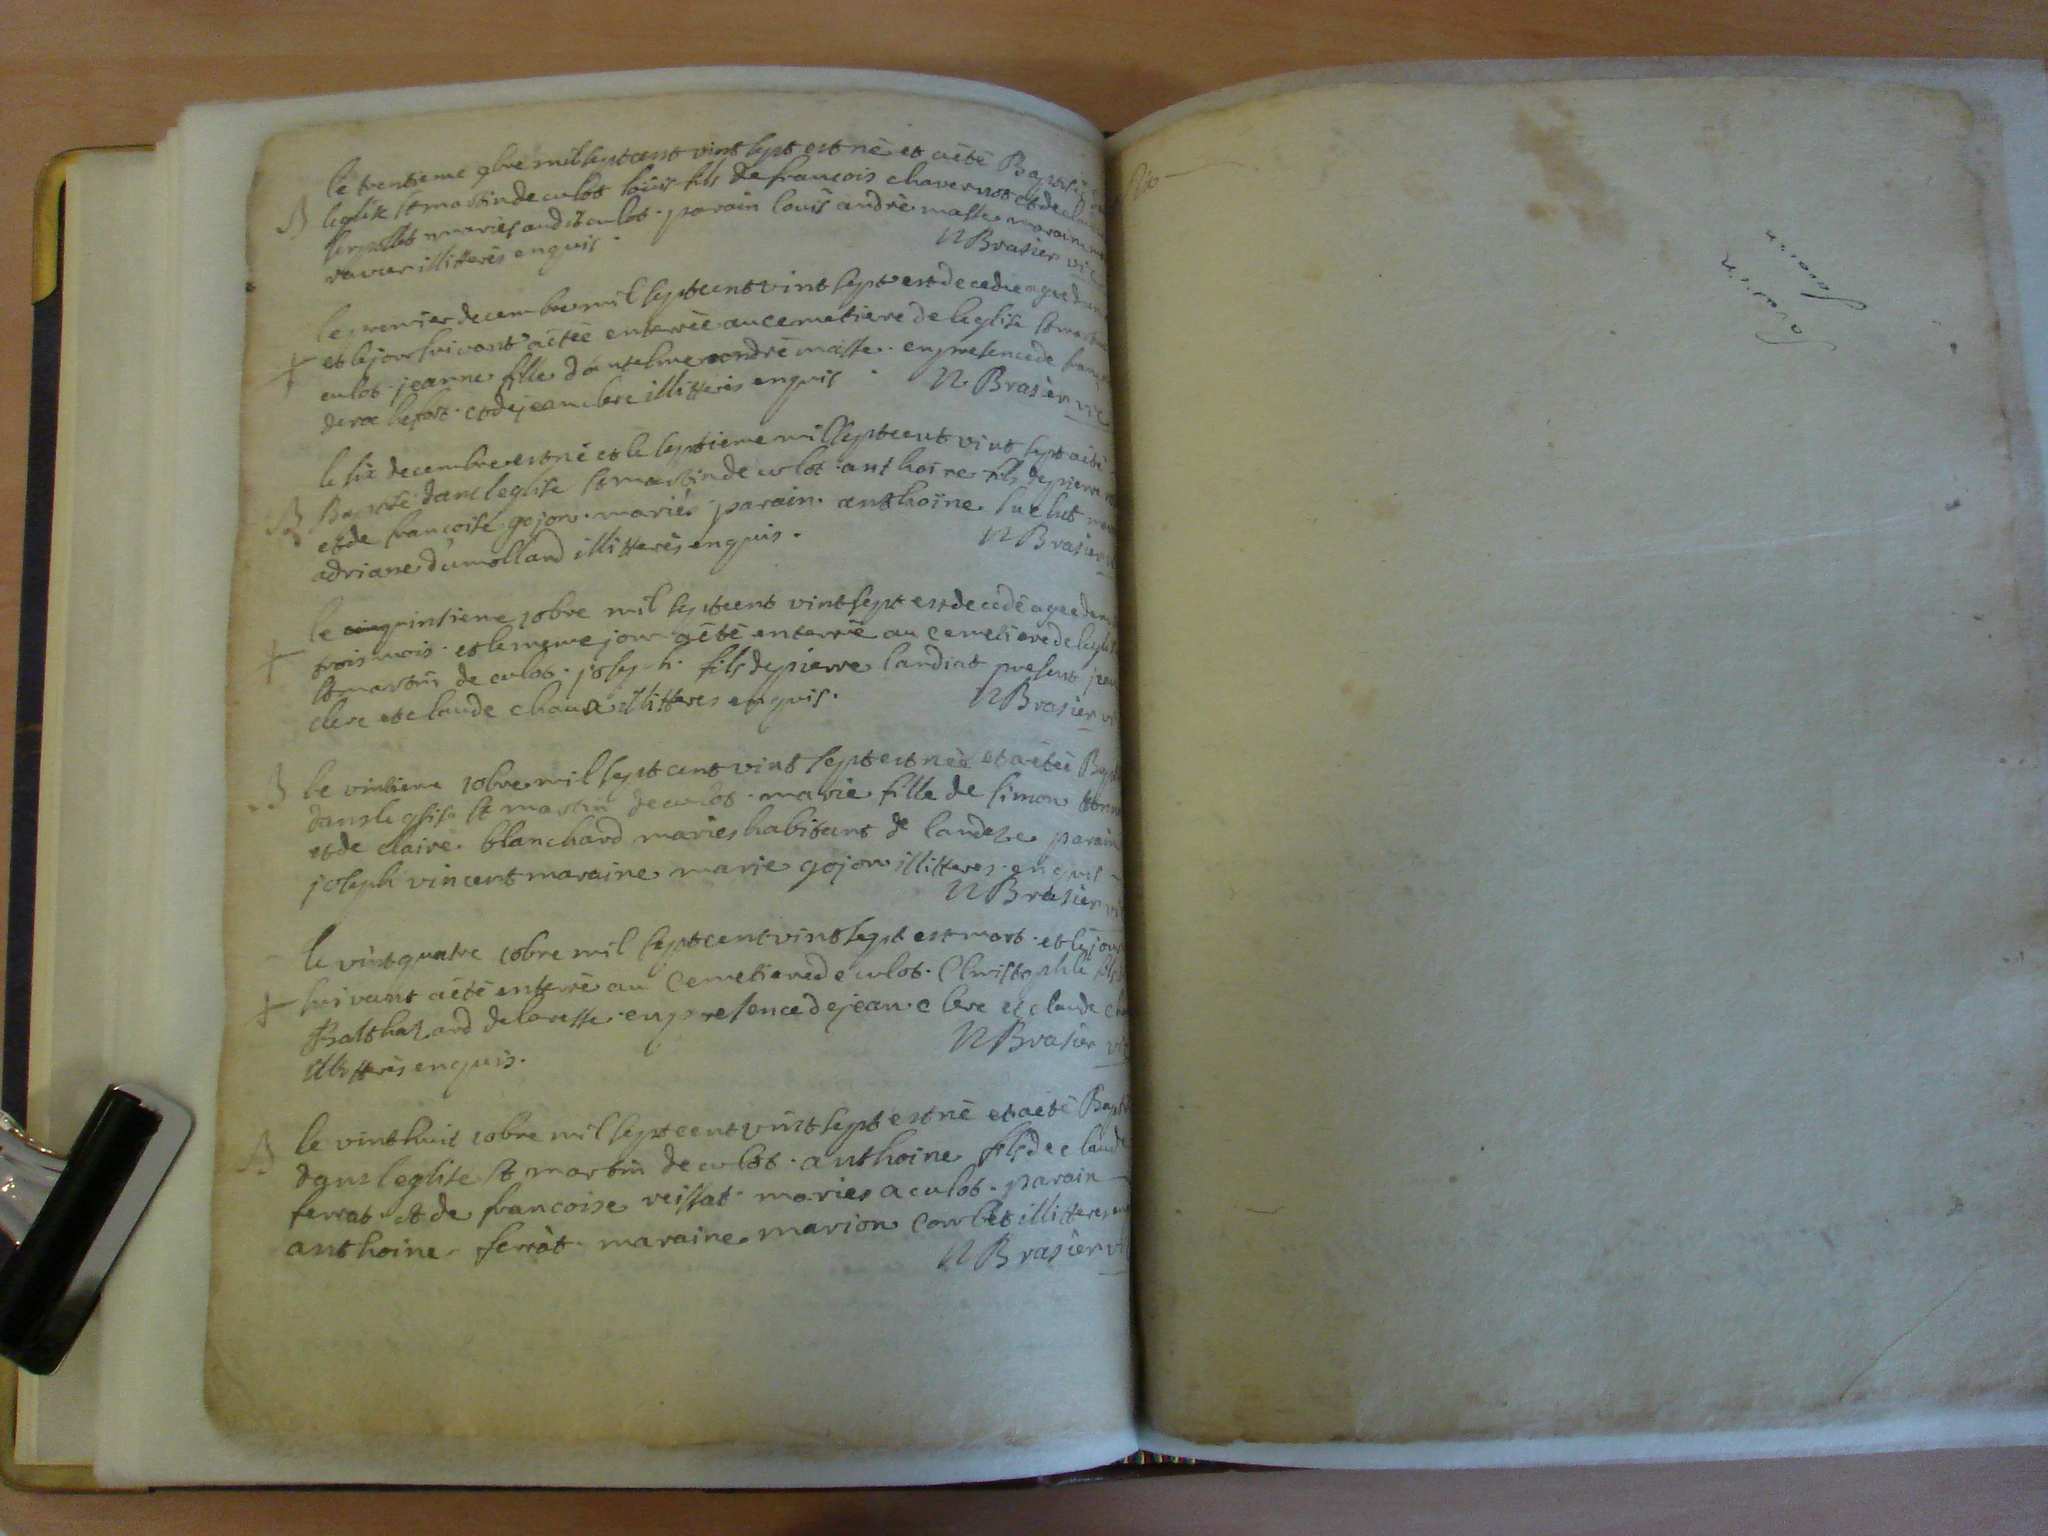 le trentieme 9bre mil sept cent vint sept est né et a été Baptisé
B leglise st martin de culos loüis fils de francois chavernot et de
mariés audit culos. parain loüis andrè masse
ravier illitterés enquis.
N Brasier vic
le premier decembre mil sept cent vint sept est decedee agee dun
et le jour suivant a étée enterrèe au cemetiere de leglise st martin
culos. jeanne fille d'antelme andrè masse. en presence de
de rochefort. et de jean clerc illitterés enquis.
N Brasier vic
le six decembre est né et le septieme mil sept cent vint sept a été
B Baptisé dans leglise st martin de culos. anthoine fils de pierre
et de francoise gojon. mariés parain. anthoine suchet
adriane dumolland illitterés enquis.
N Brasier
le quinsieme 10bre mil sept cent vint sept est decedé agé de
trois mois. et le meme jour a été enterré au cemetiere de leglise
st martin de culos. joseph. fils de pierre landiat present jean
clerc et claude chaux illitterés enquis.
N Brasier
B le vintieme 10bre mil sept cent vint sept est nèe et a étèe
dans leglise st martin de culos. marie fille de simon
et de claire blanchard mariés habitant de landeze parain
joseph vincent maraine marie gojon illitterés enquis
N Brasier
le vint quatre 10bre mil sept cent vint sept est mort. et le jour
suivant a été enterré au cemetiere de culos. Christophle fils
Balthazard delavesse. en presence de jean clerc et claude
illitterés enquis.
N Brasier vic
B le vint huit 10bre mil sept cent vint sept est né et a été
dans leglise st martin de culos. anthoine fils de claude
ferrat et de francoise veissat. mariés a culos. parain
anthoine ferràt maraine marion corbet illitterés
N Brasier